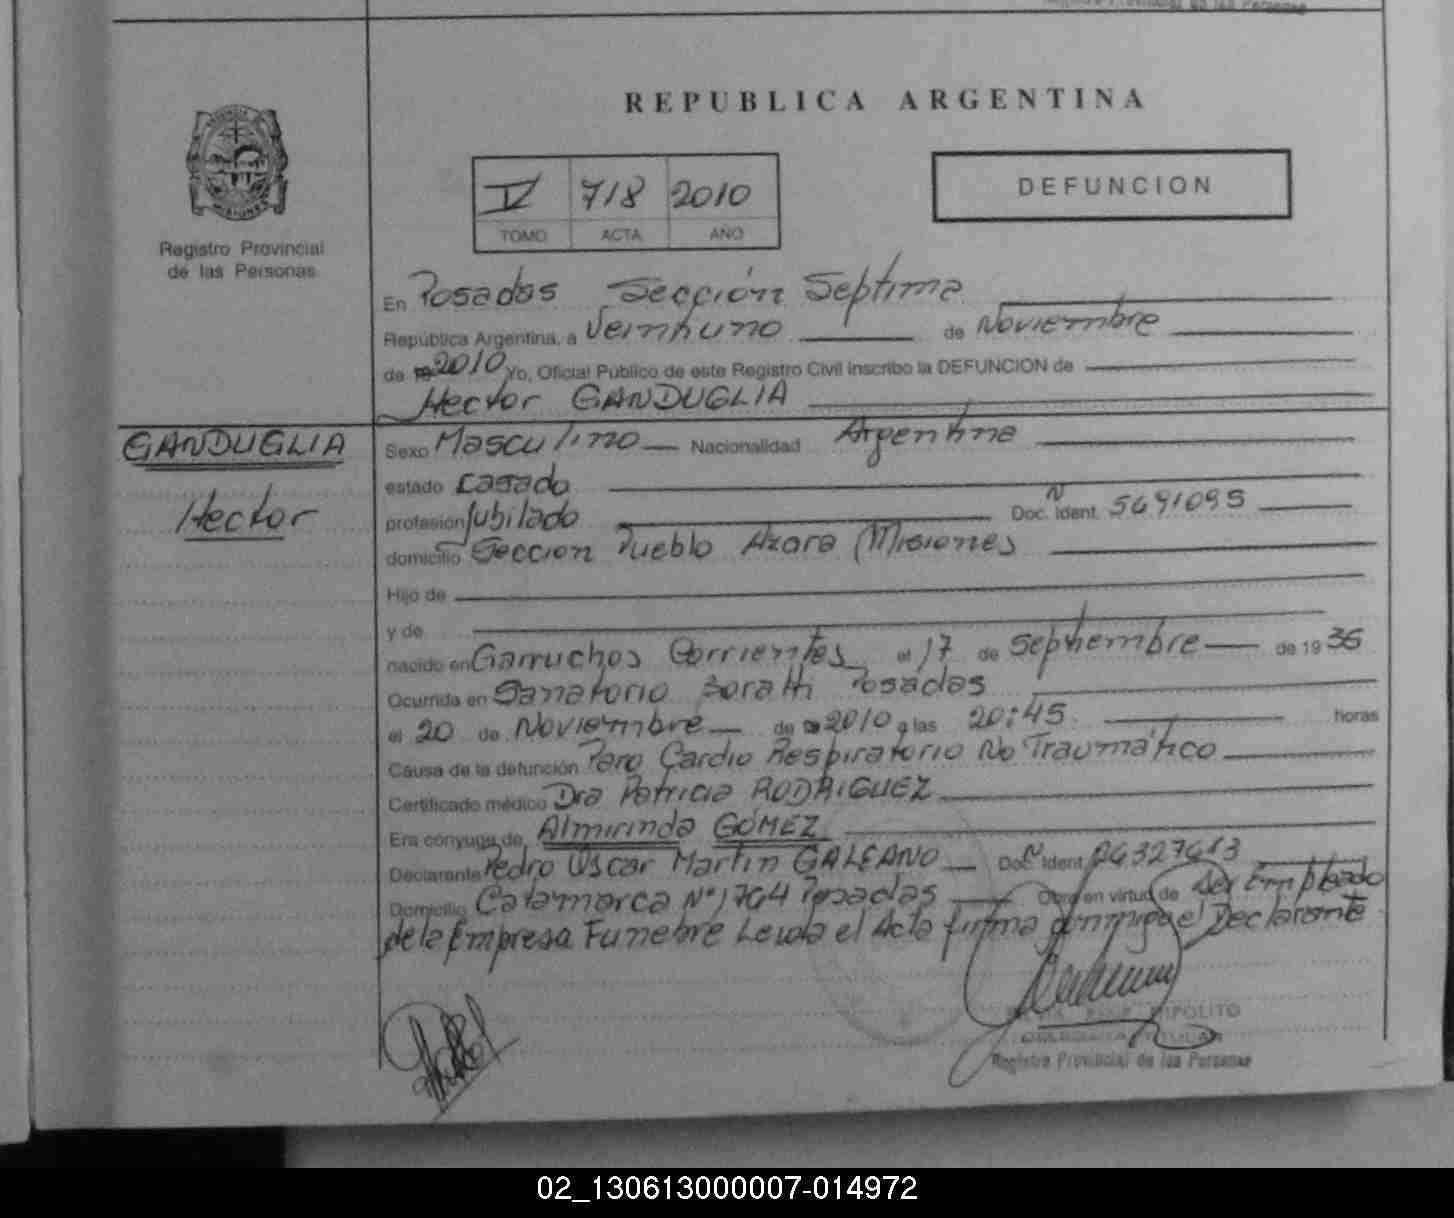 REPUBLICA ARGENTINA
Registro Provincial
de las Personas
V 718 2010
TOMO ACTA AÑO
DEFUNCION
En Posadas Sección Septima
República Argentina, a Veintiuno de Noviembre
de 2010 Yo, Oficial Público de este Registro Civil inscribo la DEFUNCION de
Hector GANDUGLIA
GANDUGLIA
Hector
Sexo Masculino Nacionalidad Argentina
estado Casado
profesión Jubilado Doc. Ident. N 5691095
domicilio Seccion Pueblo Azara (Misiones
Hijo de
y de
nacido en Garruchos Corrientes el 17 de Septiembre de 19 36
Ocurrida en Sanatorio Boratti Posadas
el 20 de Noviembre de 2010 a las 20:45 horas
Causa de la defunción Paro Cardio Respiratorio No Traumático
Certificado médico Dra Patricia RODRIGUEZ
Era cónyuge de Almirinda GOMEZ
Declarante Pedro Oscar Martin GALEANO Doc. Ident. N
Domicilio Catamarca Nº 1764 Posadas Obra en virtud de Ser Empleado
de la Empresa Funebre Leida el Acta firma conmigo el Declarante
HIPOLITO
TITULAR
Registro Provincial de las Personas
02_130613000007-014972